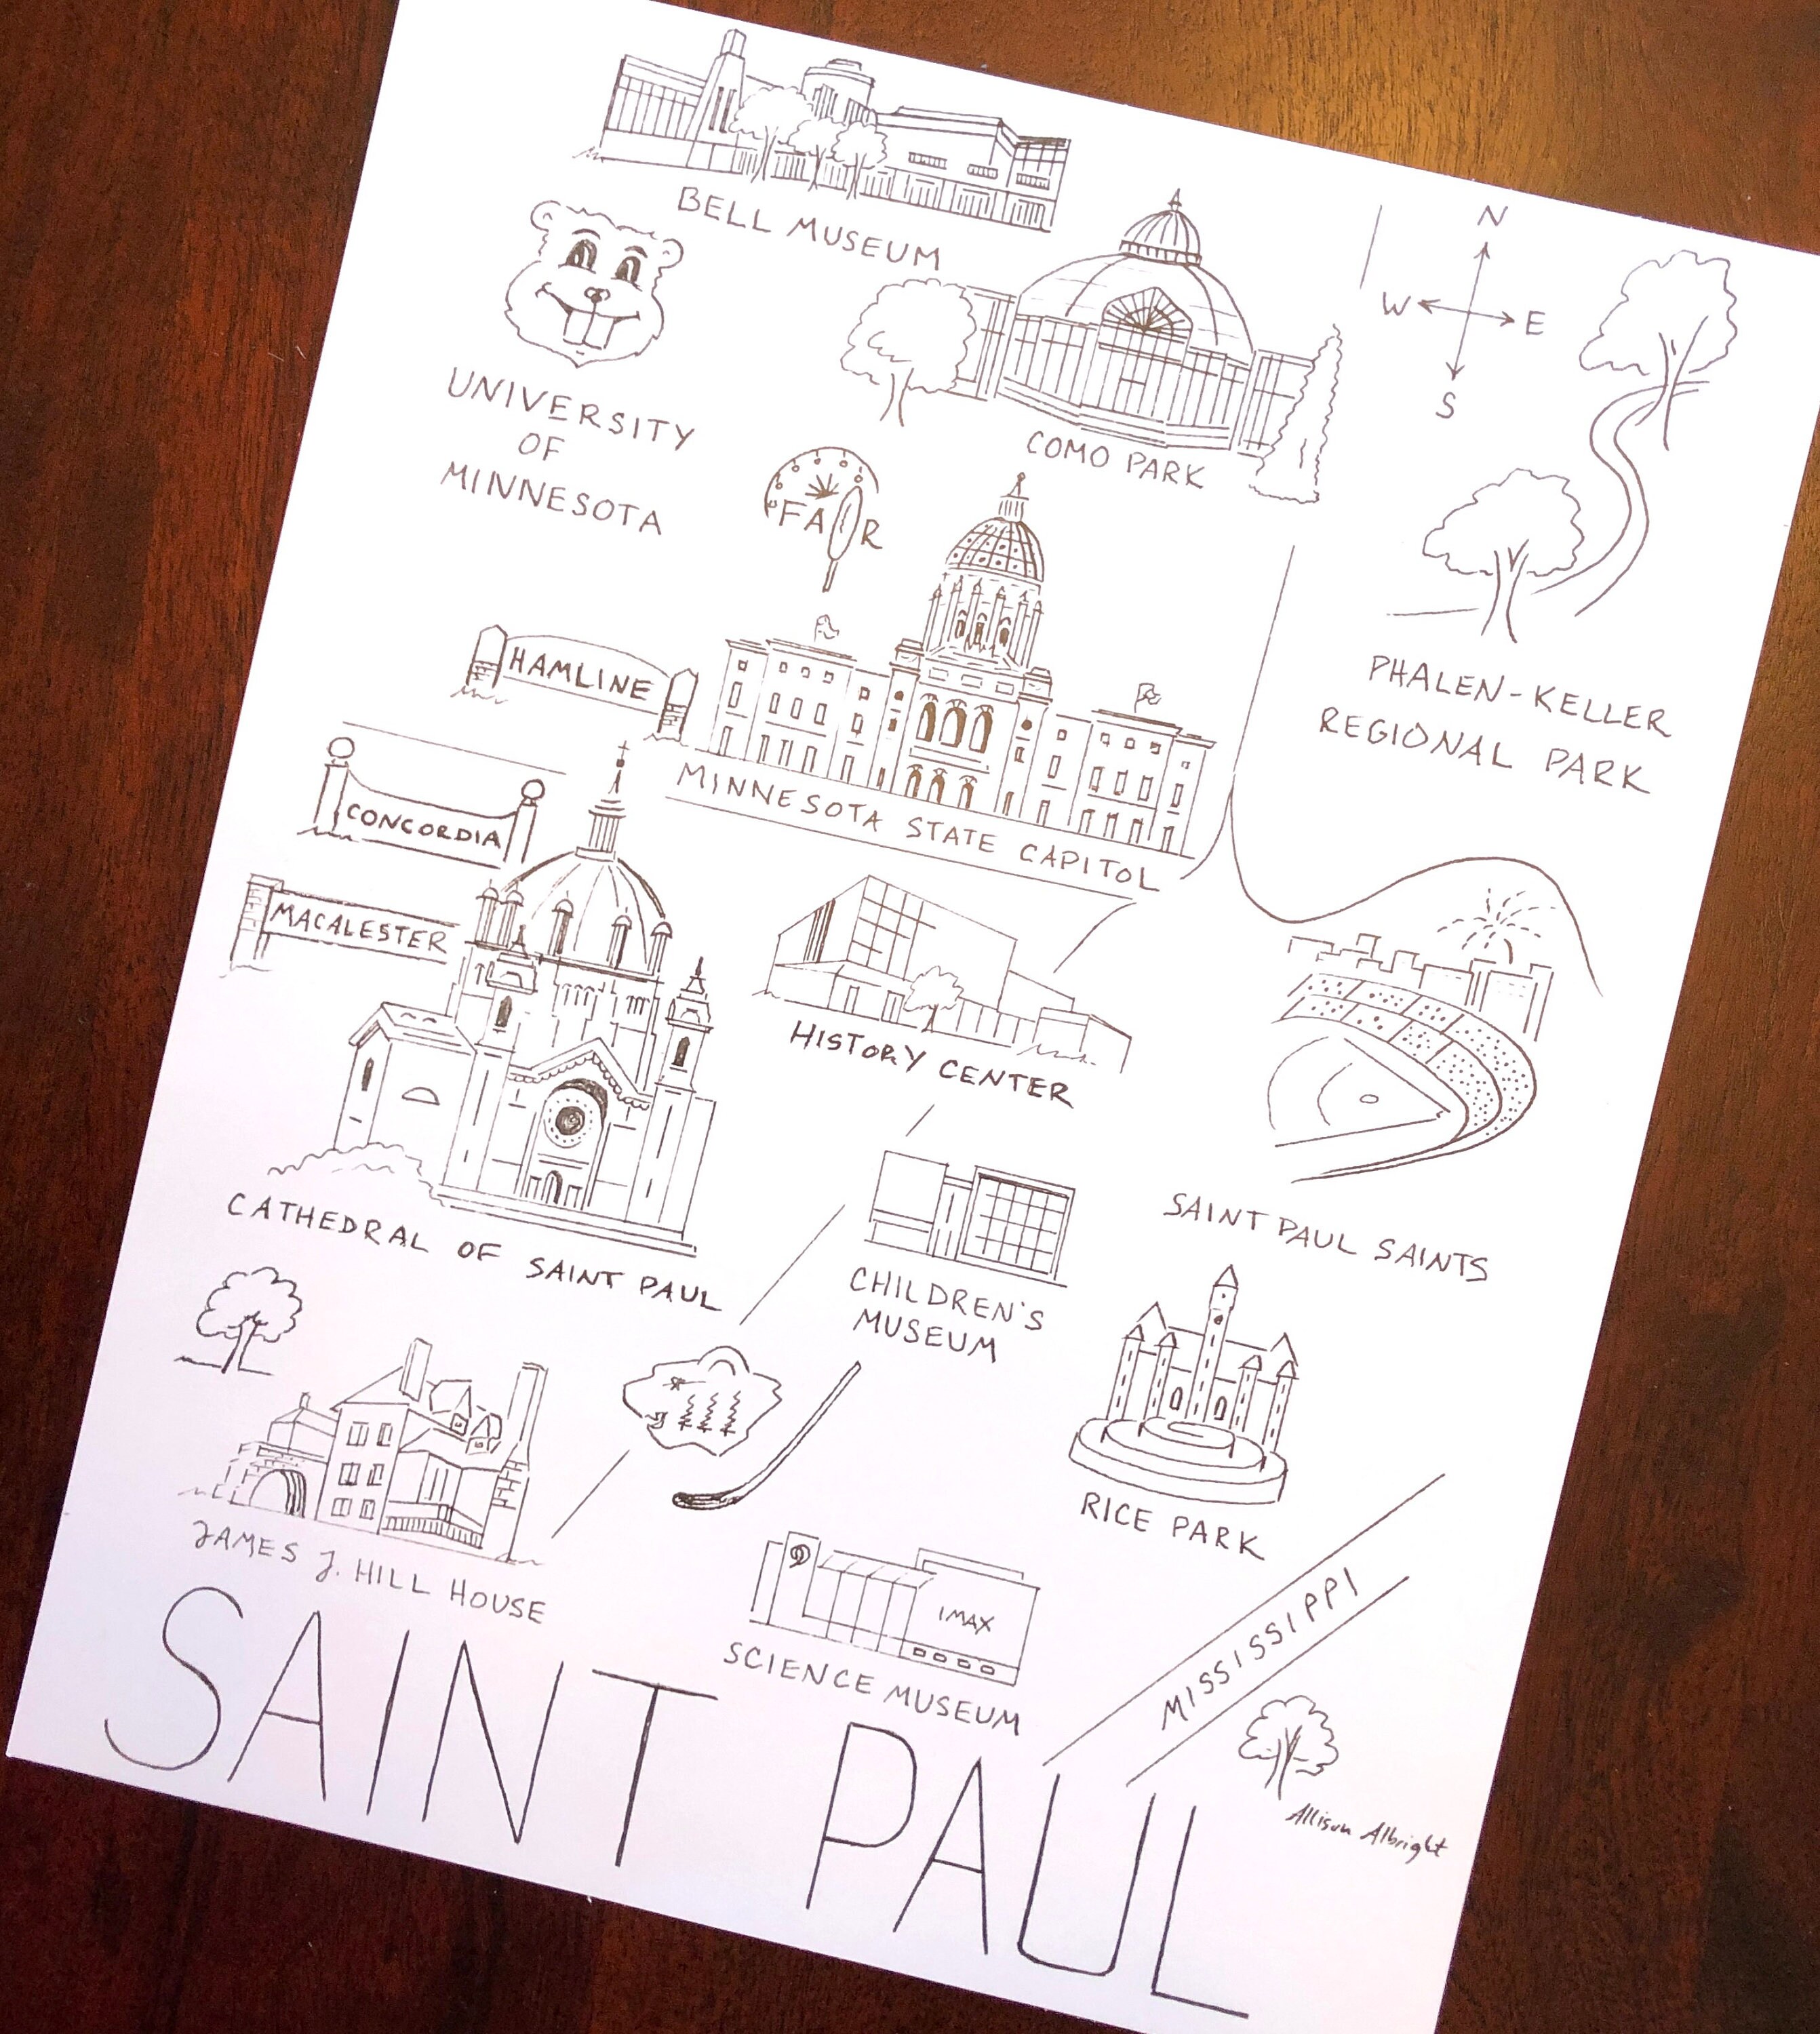 BELL MUSEUM
N
W E
S
UNIVERSITY
OF
MINNESOTA
COMO PARK
FAIR
PHALEN-KELLER
REGIONAL PARK
HAMLINE
MINNESOTA STATE CAPITOL
CONCORDIA
MACALESTER
HISTORY CENTER
CATHEDRAL OF SAINT PAUL
SAINT PAUL SAINTS
CHILDREN'S
MUSEUM
RICE PARK
JAMES J. HILL HOUSE
IMAX
SCIENCE MUSEUM
MISSISSIPPI
SAINT PAUL
Allison Albright